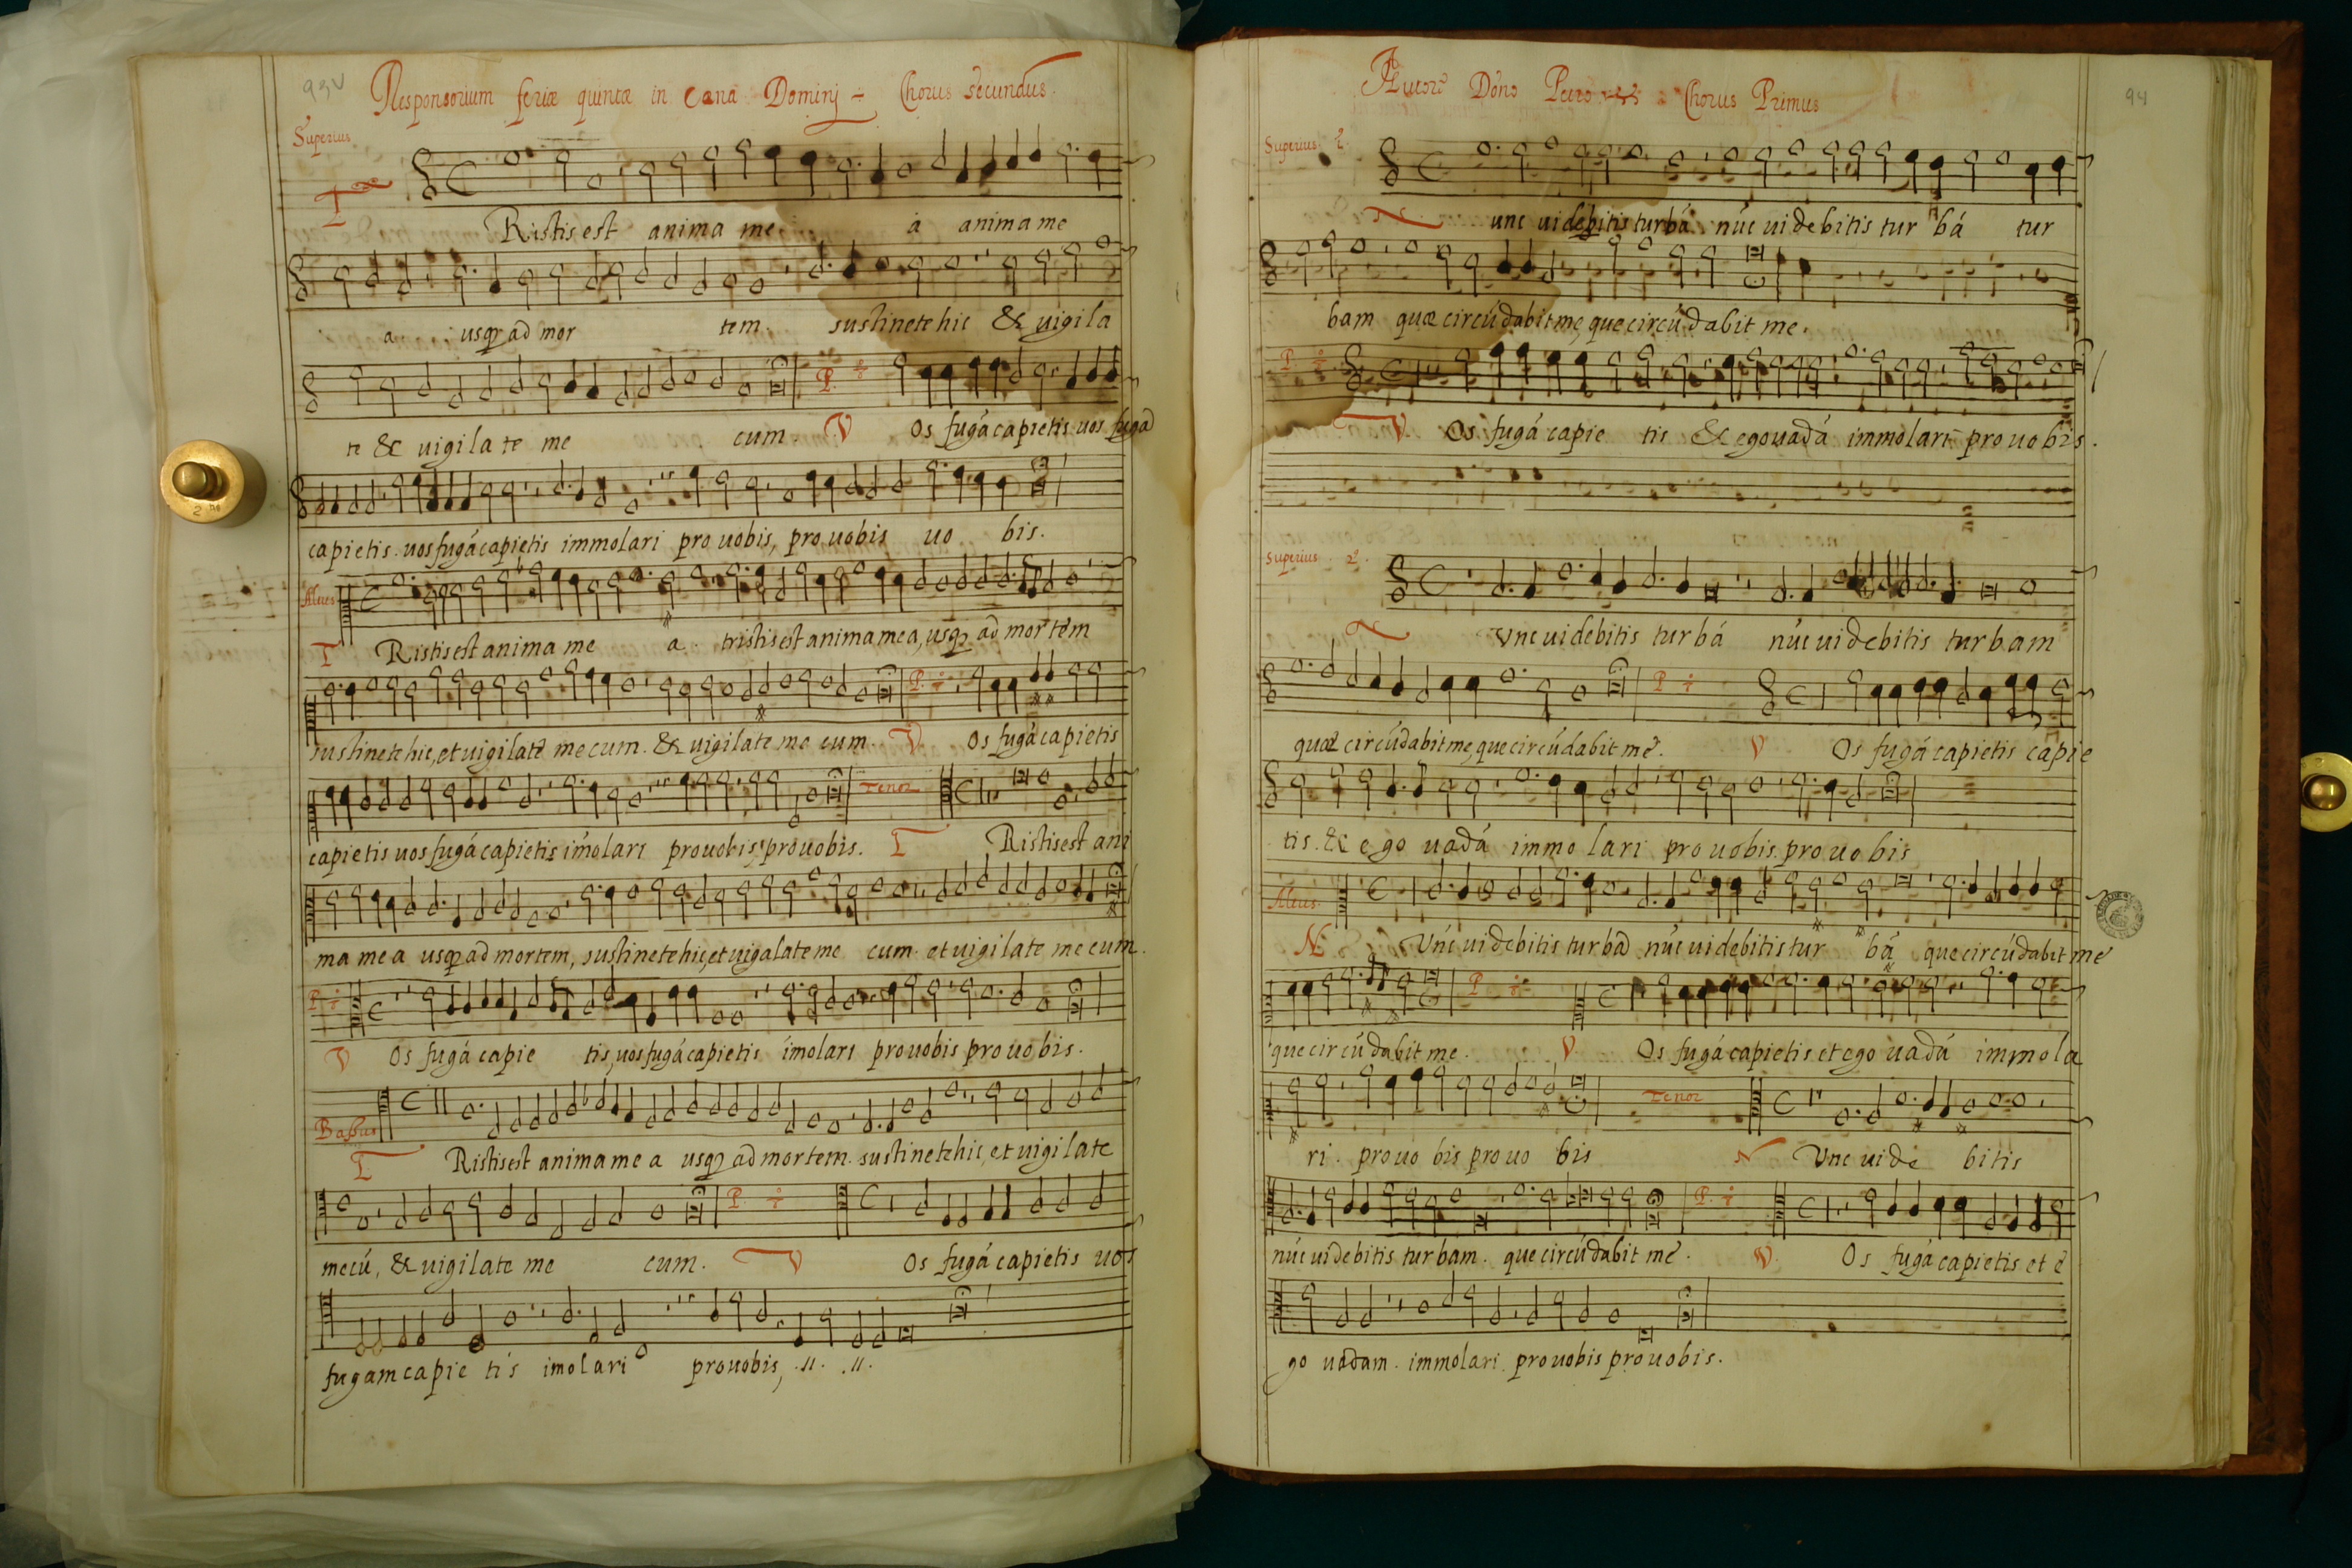 93v
Responsorium feriæ quintæ in Cæna Dominj Chorus secundus.
Superius.
T Ristis est anima me a anima me
a usq ad mor tem. sustinete hic & uigila
te & uigila te me cum. P. V Os fugá capietis. uos fugá
capietis. uos fugá capietis immolari pro uobis, pro uobis uo bis.
Altus
T Ristis est anima me a. tristis est anima mea, usq ad mortem
sustinete hic, et uigilate mecum. & uigilate me cum. P. V Os fugá capietis
capietis uos fugá capietis imolari pro uobis, pro uobis. Tenor T Ristis est ani
ma mea usq ad mortem, sustinete hic, et uigalate me cum. et uigilate me cum.
P. V Os fugá capie tis, uos fugá capietis imolari pro uobis pro uobis.
Bassus
T Ristis est anima me a usq ad mortem. sustinete hic, et uigilate
mecú, & uigilate me cum. P. V Os fugá capietis uos
fugam capie tis imolari pro uobis, .ıı. .ıı.
94
Autore Dóno Petro Chorus Primus
Superius
unc uidebitis turbá núc uidebitis tur bá tur
bam quæ circúdabit me, que circúdabit me.
P. V Os fugá capie tis & ego uadá immolari pro uobis.
Superius 2.
N Vnc uidebitis turbá núc uidebitis turbam
quæ circúdabit me, que circúdabit me. P V Os fugá capietis capie
tis. & ego uadá immo lari pro uobis. pro uo bis
Altus.
N Vnc uidebitis turbá núc uidebitis tur bá que circúdabit me
que circúdabit me. P V Os fugá capietis. et ego uadá immola
ri. pro uo bis pro uo bis Tenor N Vnc uide bitis
núc uidebitis turbam. que circúdabit me. P. V Os fugá capietis. et e
go uadam. immolari pro uobis pro uobis.